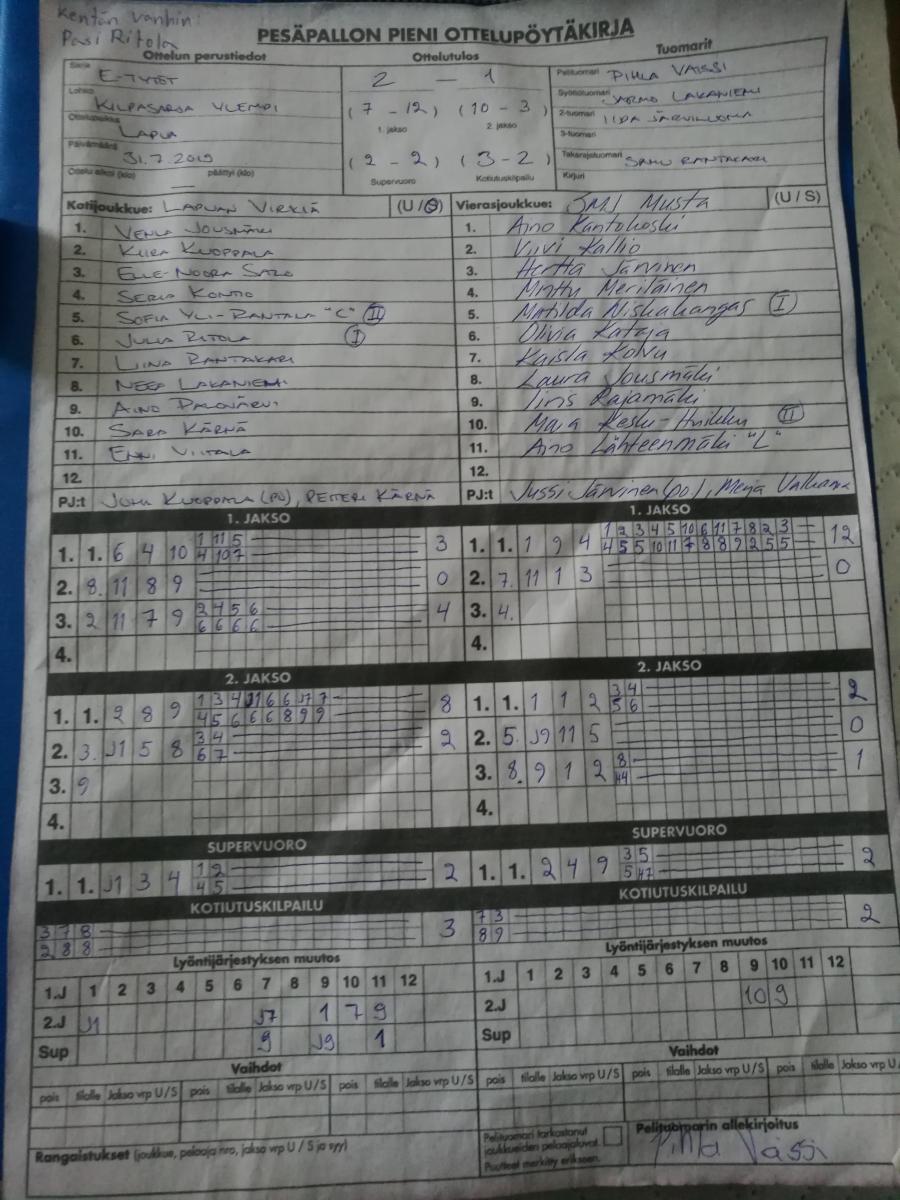 Kentän vanhin:
Pasi Ritola
PESÄPALLON PIENI OTTELUPÖYTÄKIRJA
Ottelun perustiedot
Ottelutulos
Tuomarit
Sarja E-TYTÖT
2 – 1
Pelituomari PIHLA VÄISSI
Lohko KILPASARJA YLEMPI
(7 – 12) (10 – 3)
Syöttötuomari JARMO LAKANIEMI
1. jakso 2. jakso
Ottelupaikka LAPUA
2-tuomari IIDA JÄRVILUOMA
3-tuomari
Päivämäärä 31.7.2019
(2 – 2) (3 - 2)
Takarajatuomari SAMU RANTAKARI
Ottelu alkoi (klo) — päättyi (klo)
Supervuoro Kotiutuskilpailu
Kirjuri
Kotijoukkue: LAPUAN VIRKIÄ (U/S)
Vierasjoukkue: JMJ Musta (U/S)
1. VENLA JOUSMÄKI
1. Aino Kantokoski
2. KIIRA KUOPPALA
2. Viivi Kallio
3. ELLE-NOORA SALO
3. Hertta Järvinen
4. KONTIO
4. Minttu Meriläinen
5. SOFIA YLI-RANTALA "C" II
5. Matilda Niskakangas I
6. JULIA RITOLA I
6. Olivia Kataja
7. LIINA RANTAKARI
7. Kaisla Koivu
8. NEEA LAKANIEMI
8. Laura Jousmäki
9. AINO PALOJÄRVI
9. Iiris Rajamäki
10. SARA KÄRNÄ
10. Maija II
11. ENNI VIITALA
11. Aino Lähteenmäki "L"
12.
12.
PJ:t JUHA KUOPPALA (PV), PETTERI KÄRNÄ
PJ:t Jussi Järvinen (po), Merja
1. JAKSO
1. JAKSO
1. 1. 6 4 10 1 11 5 3
4 10 7
1. 1. 1 9 4 1 2 3 4 5 10 6 11 7 8 2 3 12
4 5 5 10 11 7 8 8 9 2 5 5
2. 8. 11 8 9 0
2. 7. 11 1 3 0
3. 2 11 7 9 2 4 5 6 4
6 6 6 6
3. 4.
4.
4.
2. JAKSO
2. JAKSO
1. 1. 2 8 9 1 3 4 J1 6 6 J7 7 8
4 5 6 6 6 8 9 9
1. 1. 1 1 2 3 4 2
5 6
2. 3. J1 5 8 3 4 2
6 7
2. 5. J9 11 5 0
3. 9
3. 8. 9 1 2 8 1
4.
4.
SUPERVUORO
SUPERVUORO
1. 1. J1 3 4 1 2 2
4 5
1. 1. 2 4 9 3 5 2
KOTIUTUSKILPAILU
KOTIUTUSKILPAILU
3 7 8 3
2 8 8
7 3 2
8 9
Lyöntijärjestyksen muutos
Lyöntijärjestyksen muutos
1.J 1 2 3 4 5 6 7 8 9 10 11 12
1.J 1 2 3 4 5 6 7 8 9 10 11 12
2.J J1 J7 1 7 9
2.J 10 9
Sup 9 J9 1
Sup
Vaihdot
Vaihdot
pois tilalle Jakso vrp U/S pois tilalle Jakso vrp U/S pois tilalle Jakso vrp U/S
pois tilalle Jakso vrp U/S pois tilalle Jakso vrp U/S pois tilalle Jakso vrp U/
Rangaistukset (joukkue, pelaaja nro, jakso vrp U / S ja syy)
Pelituomari tarkastanut
joukkueiden pelaajaluvat.
Puutteet merkitty erikseen.
Pelituomarin allekirjoitus
Pihla Väissi